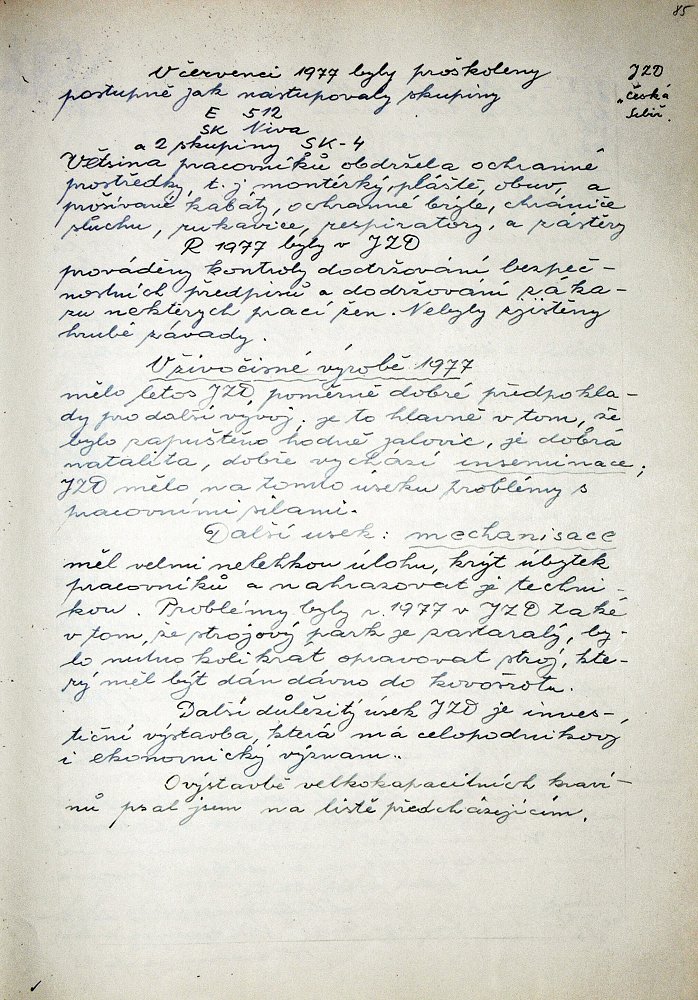 85
JZD
"Česká
Sibiř".
V červenci 1977 byly proškoleny
postupně jak nastupovaly skupiny
E 512
SK Niva
a 2 skupiny SK-4
Většina pracovníků obdržela ochranné
prostředky, t. j. montérky, pláště, obuv, a
prošívané kabáty, ochranné brýle, chrániče
sluchu, rukavice, respirátory, a zástěry
R 1977 byly v JZD
prováděny kontroly dodržování bezpeč-
nostních předpisů a dodržování záka-
zu některých prací žen. Nebyly zjištěny
hrubé závady.
V živočišné výrobě 1977
mělo letos JZD, poměrně dobré předpokla-
dy pro další vývoj, je to hlavně v tom, že
bylo zapuštěno hodně jalovic, je dobrá
natalita, dobře vychází inseminace;
JZD mělo na tomto úseku problémy s
pracovními silami.
Další úsek: mechanisace
měl velmi nelehkou úlohu, krýt úbytek
pracovníků a nahrazovat je techni-
kou. Problémy byly r. 1977 v JZD také
v tom, že strojový park je zastaralý, by-
lo nutno kolikrát opravovat stroj, kte-
rý měl být dán dávno do kovošrotu.
Další důležitý úsek JZD je inves-
tiční výstavba, která má celopodnikový
i ekonomický význam..
O výstavbě velkokapacitních kraví-
nů psal jsem na listě předcházejícím.